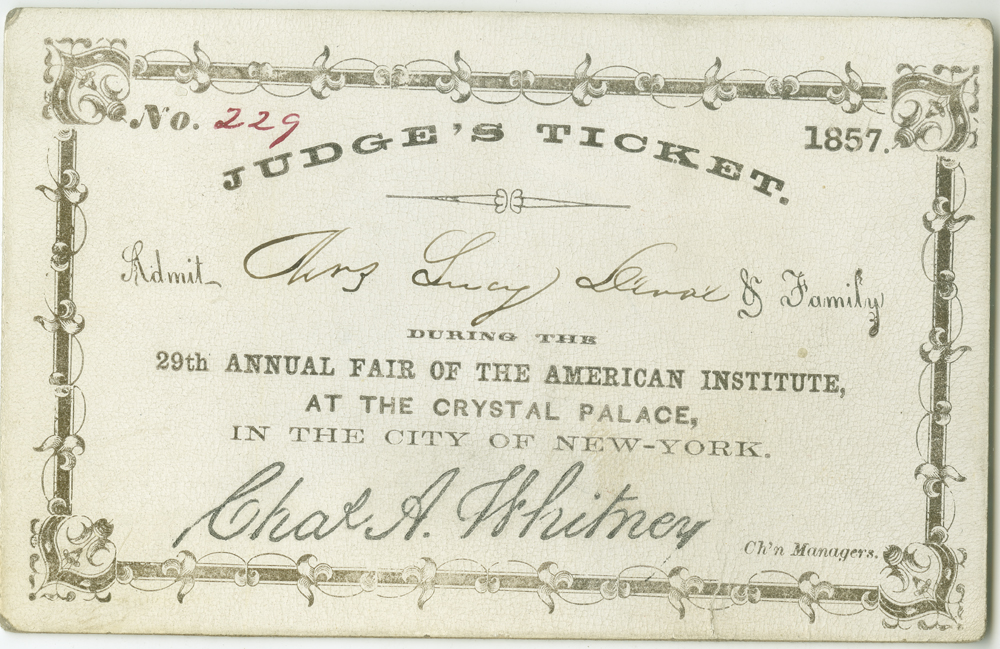 No. 229
1857.
JUDGE'S TICKET.
Admit Mrs Lucy & Family
DURING THE
29th ANNUAL FAIR OF THE AMERICAN INSTITUTE,
AT THE CRYSTAL PALACE,
IN THE CITY OF NEW-YORK.
Chas A. Whitney
Ch'n Managers.